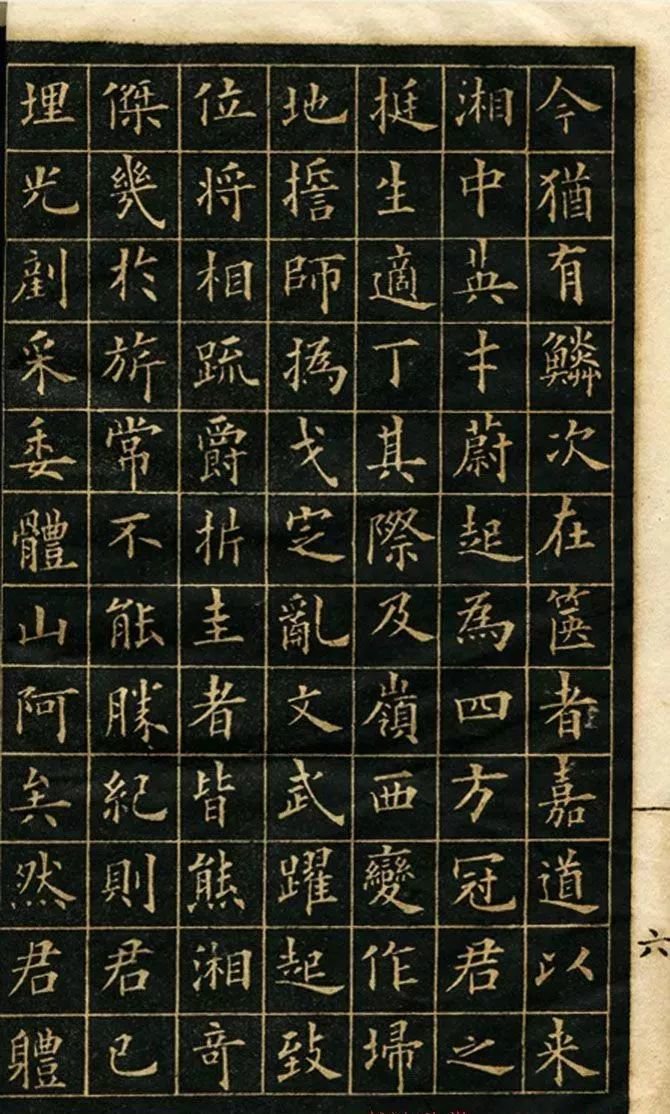 今猶有鱗次在篋者嘉道以来
湘中英才蔚起為四方冠君之
挺生適丁其際及嶺西變作埽
地擔師撝戈定亂文武躍起致
位将相疏爵析圭者皆熊湘奇
傑幾於旂常不能勝紀則君已
埋光剷采委體山阿矣然君軆
六